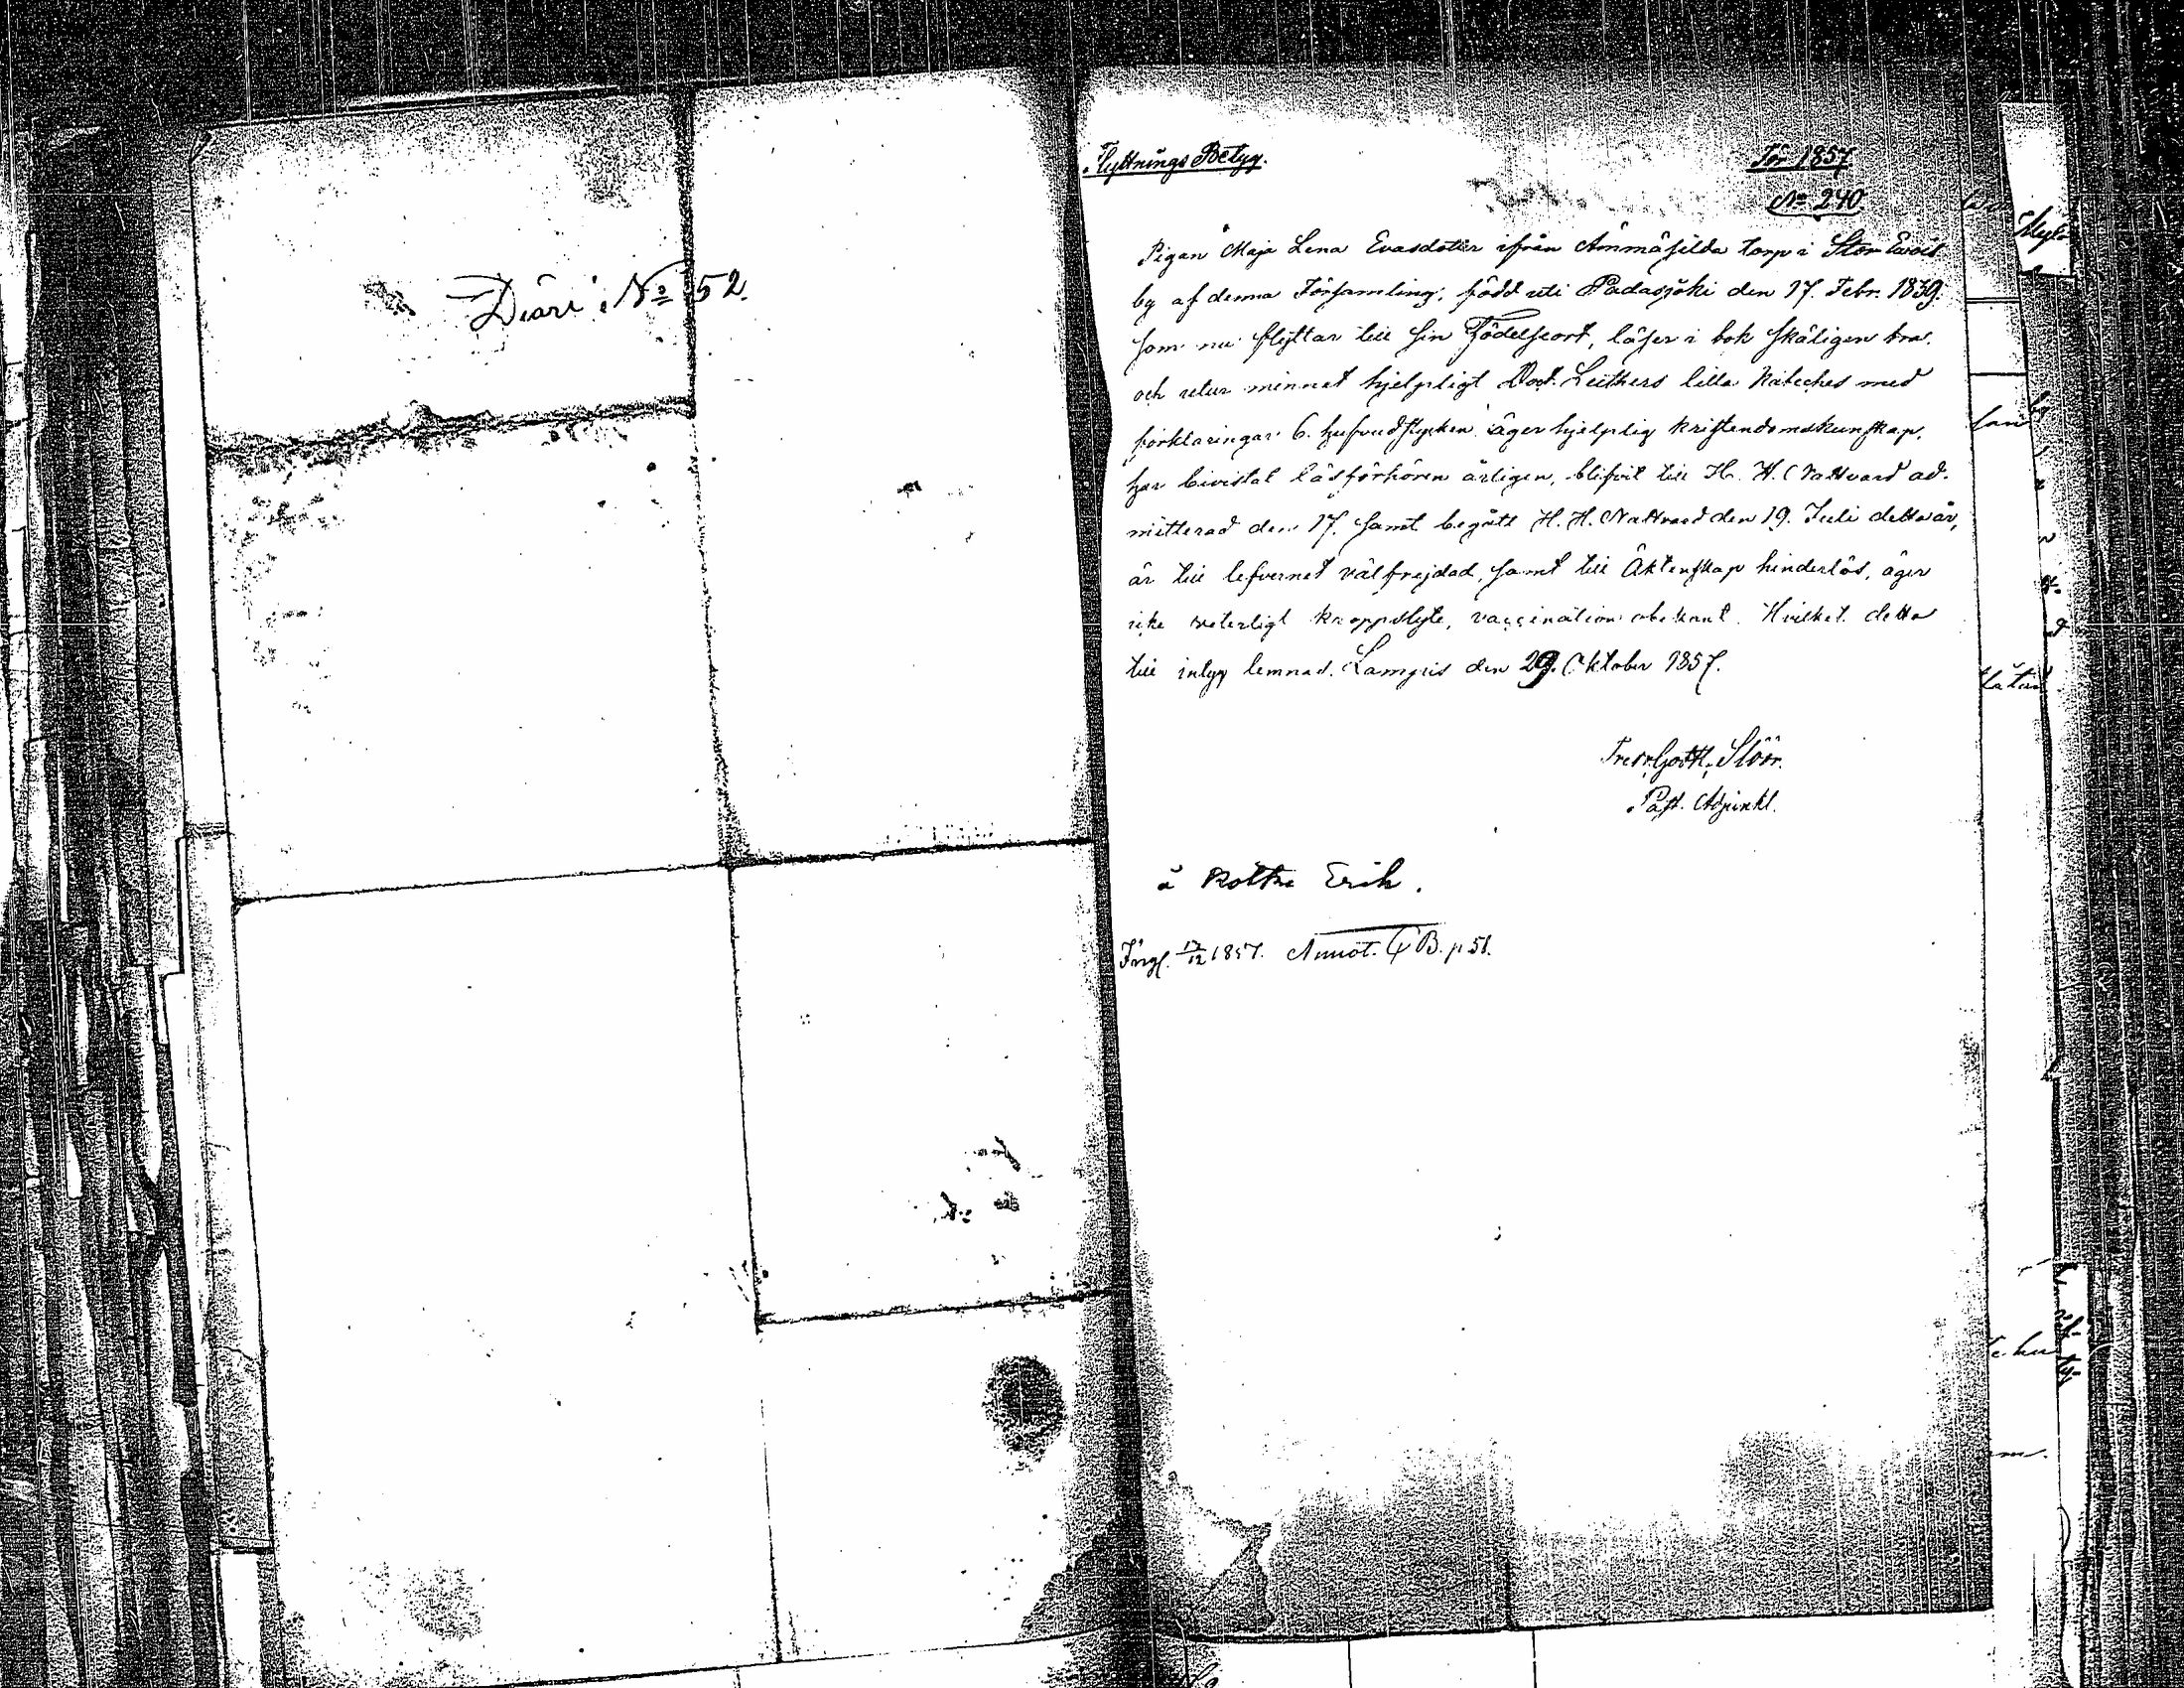 Diari No 52.
Flyttnings Betyg.
För 1857
No 240
Pigan Maja Lena Evasdotter ifrån Ammäsilda torp i Stor Evois
by af denna Församling, född uti Padasjoki den 17. Febr. 1839.
som nu flyttar till sin Födelseort, läser i bok skäligen bra,
och utur minnet hjelpligt Doct. Luthers lilla Kateches med
förklaringar 6. hufvudstycken äger hjelplig kristendomskunskap,
har bivistat läsförhören årligen, blifvit till H. H. Nattvard ad-
mitterad den 17. samt begått H. H. Nattvard den 19. Juli detta år,
är till lefvernet välfrejdad, samt till Äktenskap hinderlös, äger
icke veterligt kroppslyte, vaccination obekant. Hvilket detta
till intyg lemnad. Lampis den 29. Oktober 1857.
Fredr. Gottl. Stöör.
Past. Adjunkt.
å Erik.
Ingf. 13/12 1857. Annot. B. p 51.